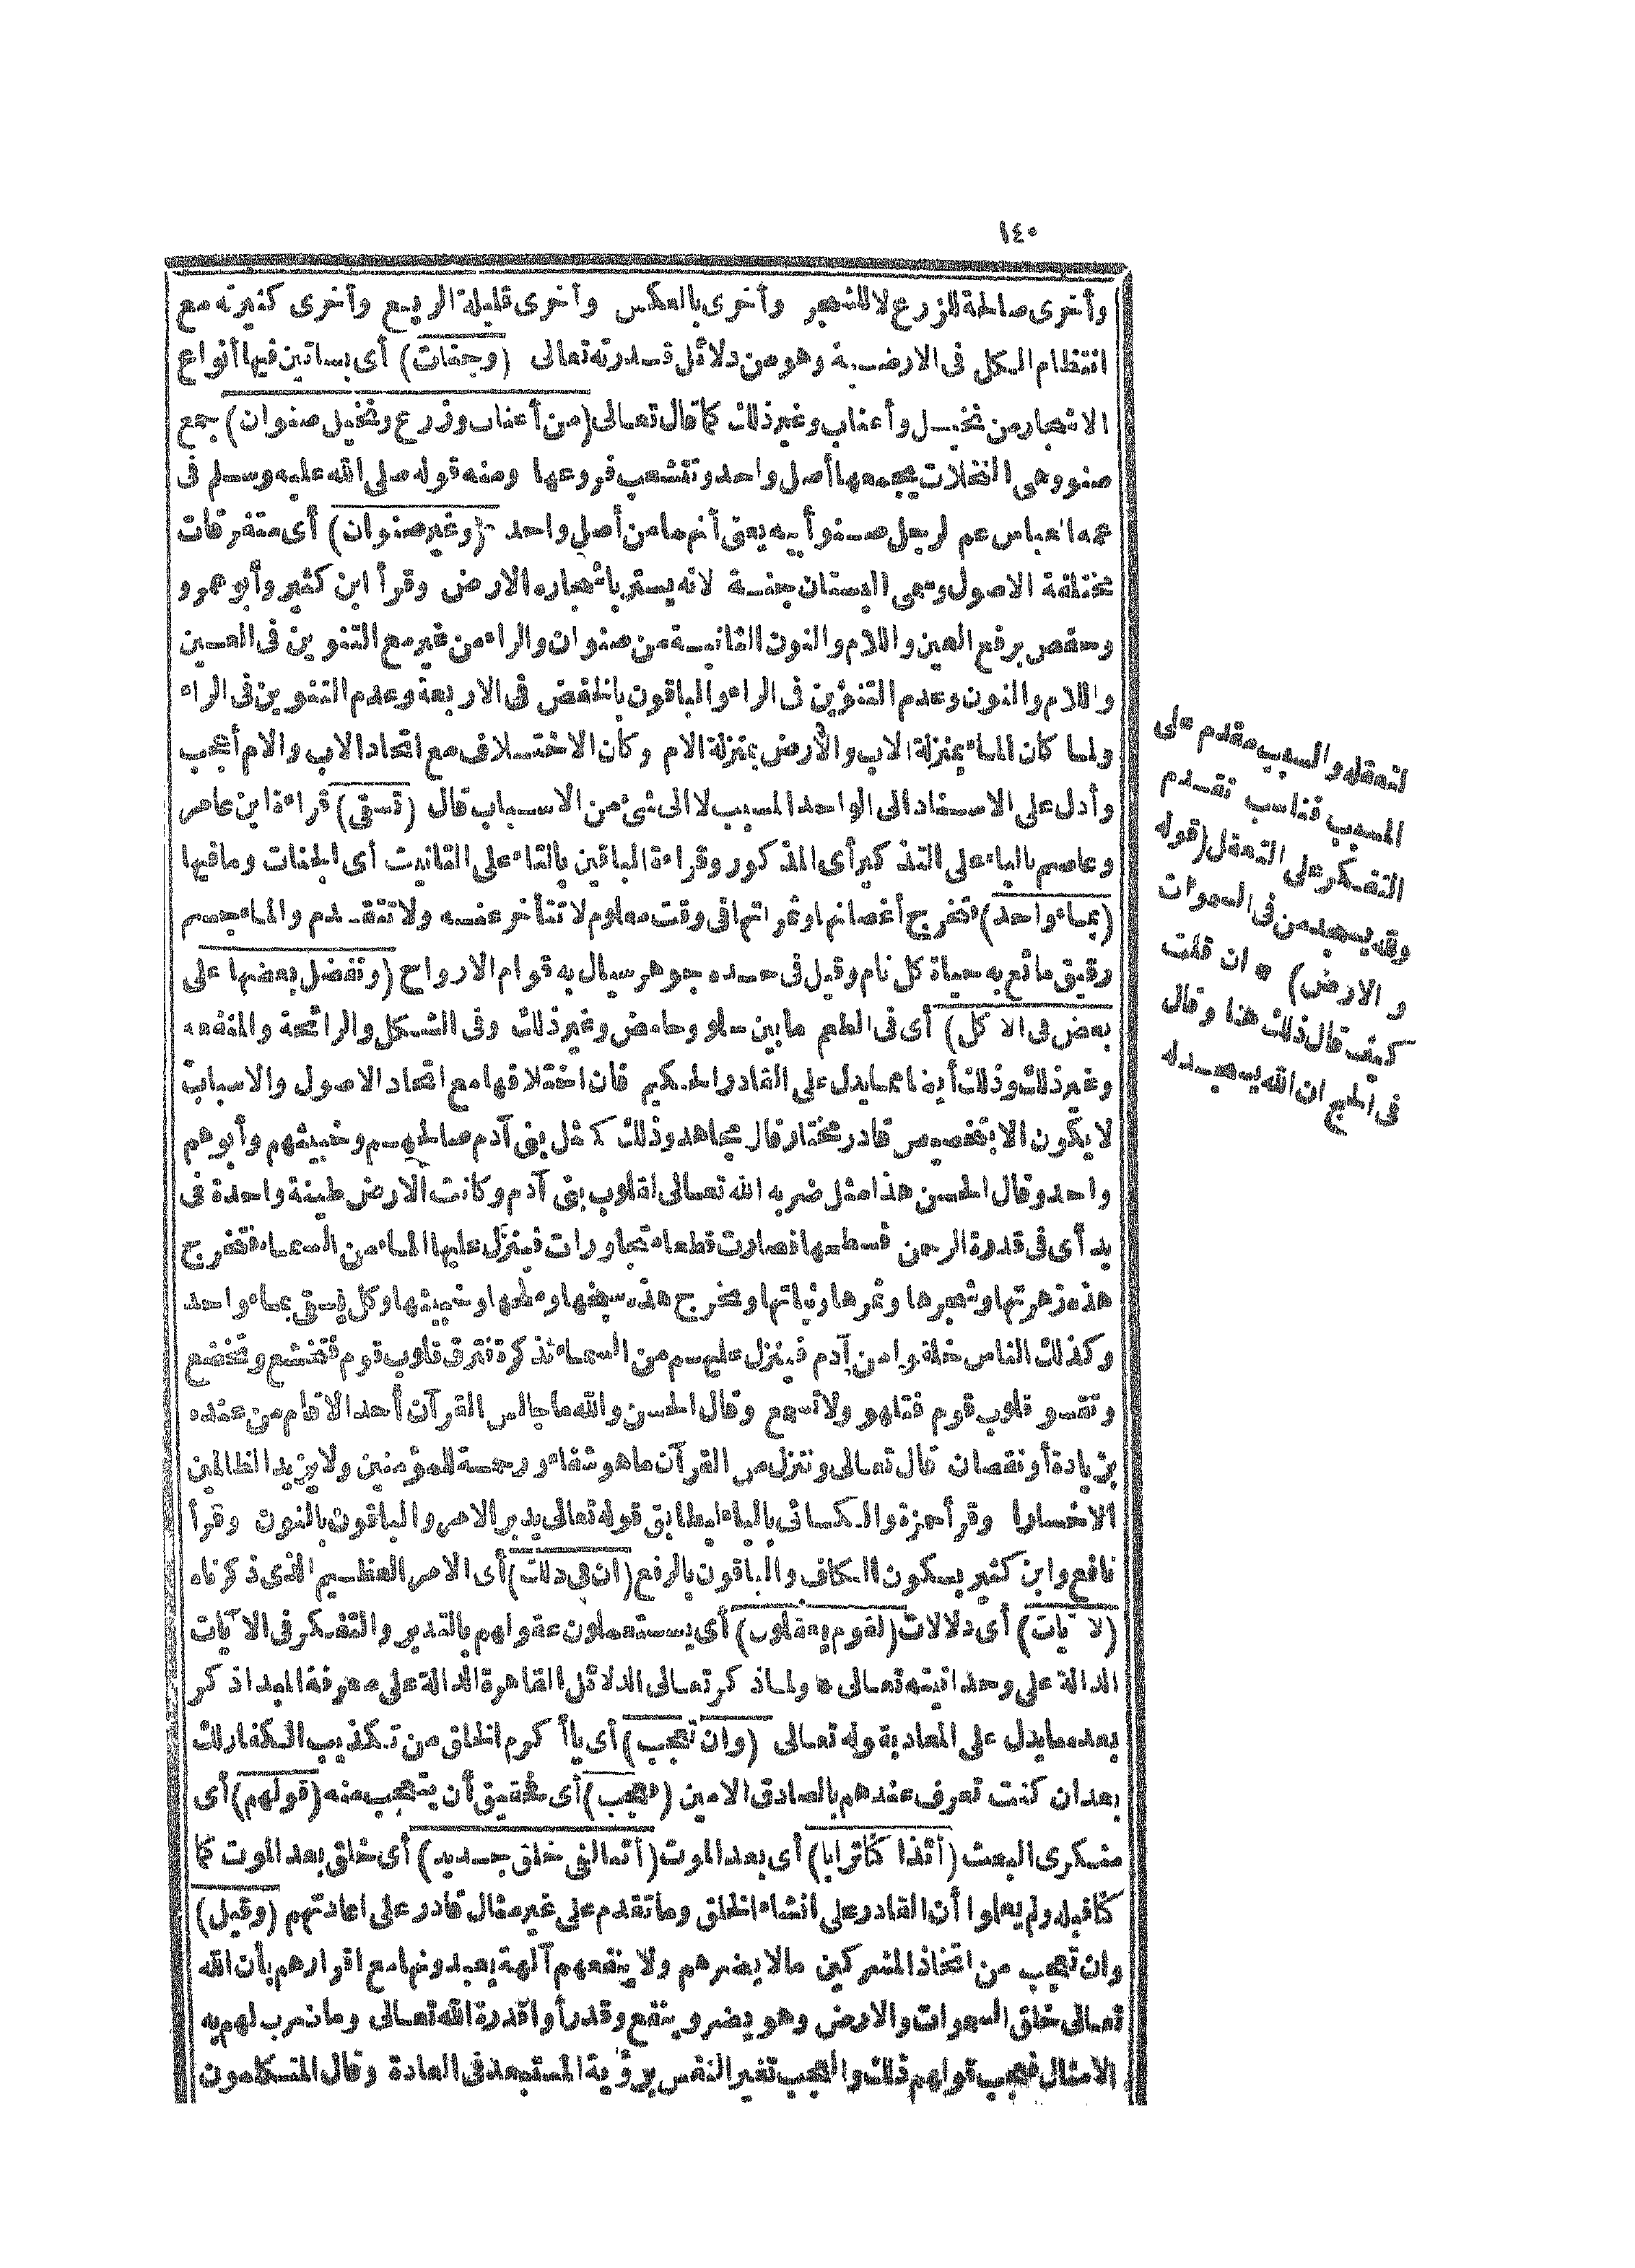 ١٤٠
وأخرى صالحة للزرع لا للشجر وأخرى بالعكس وأخرى قليلة الريع وأخرى كثيرته مع
انتظام الكل في الارضية وهو من دلائل قدرته تعالى (وجنات) أى بساتين فيها أنواع
الاشجار من نخيل وأعناب وغير ذلك كما قال تعالى (من أعناب وزرع ونخيل صنوان) جمع
صنو وهى النخلات يجمعها أصل واحد وتتشعب فروعها ومنه قوله صلى الله عليه وسلم فى
عمه العباس عم الرجل صنو أبيه يعنى أنهما من أصل واحد (وغير صنوان) أى متفرقات
مختلفة الاصول وسمى البستان جنة لانه يستر باشجاره الارض وقرأ ابن كثير وأبو عمرو
وحفص برفع العين واللام والنون الثانية من صنوان والراء من غير مع التنوين فى العين
واللام والنون وعدم التنوين فى الراء والباقون بالخفض فى الاربعة وعدم التنوين فى الراء
ولما كان الماء بمنزلة الاب والأرض بمنزلة الام وكان الاختلاف مع اتحاد الاب والام أعجب
وأدل على الاسناد الى الواحد المسبب لا الى شئ من الاسباب قال (تسقى) قراءة ابن عامر
وعاصم بالياء على التذكير أى المذكور وقراءة الباقين بالتاء على التانيث أى الجنات وما فيها
(بماء واحد) فتخرج أغصانها وثمراتها فى وقت معلوم لا تتأخر عنه ولا تتقدم والماء جسم
رقيق مائع به حياة كل نام وقيل فى حده جوهر سيال به قوام الارواح (ونفضل بعضها على
بعض فى الاكل) أى فى الطعم ما بين حلو وحامض وغير ذلك وفى الشكل والرائحة والمنفعه
وغير ذلك وذلك أيضا مما يدل على القادر الحكيم فان اختلافها مع اتحاد الاصول والاسباب
لا يكون الا بتخصيص قادر مختار قال مجاهد وذلك كمثل بنى آدم صالحهم وخبيثهم وأبوهم
واحد وقال الحسن هذا مثل ضربه الله تعالى لقلوب بنى آدم وكانت الارض طينة واحدة فى
يد أى فى قدرة الرحمن فسطحها فصارت قطعا متجاورات فينزل عليها الماء من السماء فتخرج
هذه زهرتها وشجرها وثمرها ونباتها وتخرج هذه سبخها وملحها وخبيثها وكل يسقى بماء واحد
وكذلك الناس خلقوا من آدم فينزل عليهم من السماء تذكرة فترق قلوب قوم فتخشع وتخضع
وتقسو قلوب قوم فتلهو ولا تسمع وقال الحسن والله ما جالس القرآن أحد الا قام من عنده
بزيادة أو نقصان قال تعالى وننزل من القرآن ما هو شفاء ورحمة للمؤمنين ولا يزيد الظالمين
الا خسارا وقرأ حمزة والكسائى بالياء ليطابق قوله تعالى يدبر الامر والباقون بالنون وقرأ
نافع وابن كثير بسكون الكاف والباقون بالرفع (ان فى ذلك) أى الامر العظيم الذى ذكرناه
(لآيات) أى دلالات (لقوم يعقلون) أى يستعملون عقولهم بالتدبر والتفكر فى الآيات
الدالة على وحدانيته تعالى * ولما ذكر تعالى الدلائل القاهرة الدالة على معرفة المبدا ذكر
بعده ما يدل على المعاد بقوله تعالى (وان تعجب) أى يا أكرم الخلق من تكذيب الكفار لك
بعد ان كنت تعرف عندهم بالصادق الامين (فعجب) أى حقيق أن يتعجب منه (قولهم) أى
منكرى البعث (أئذا كنا ترابا) أى بعد الموت (أئنا لفى خلق جديد) أى خلق بعد الموت كما
كنا قبله ولم يعلموا أن القادر على انشاء الخلق وما تقدم على غير مثال قادر على اعادتهم (وقيل)
وان تعجب من اتخاذ المشركين ما لا يضرهم ولا ينفعهم آلهة يعبدونها مع اقرارهم بأن الله
تعالى خلق السموات والارض وهو يضر وينفع وقد رأوا قدرة الله تعالى وما ضرب لهم به
الامثال فعجب قولهم ذلك والعجب تغير النفس برؤية المستبعد فى العادة وقال المتكلمون
لتعقله والسبب مقدم على
المسبب فناسب تقدم
التفكر على التعقل (قوله
ولله يسجد من فى السموات
والارض) * ان قلت
كيف قال ذلك هنا وقال
فى الحج ان الله يسجد له